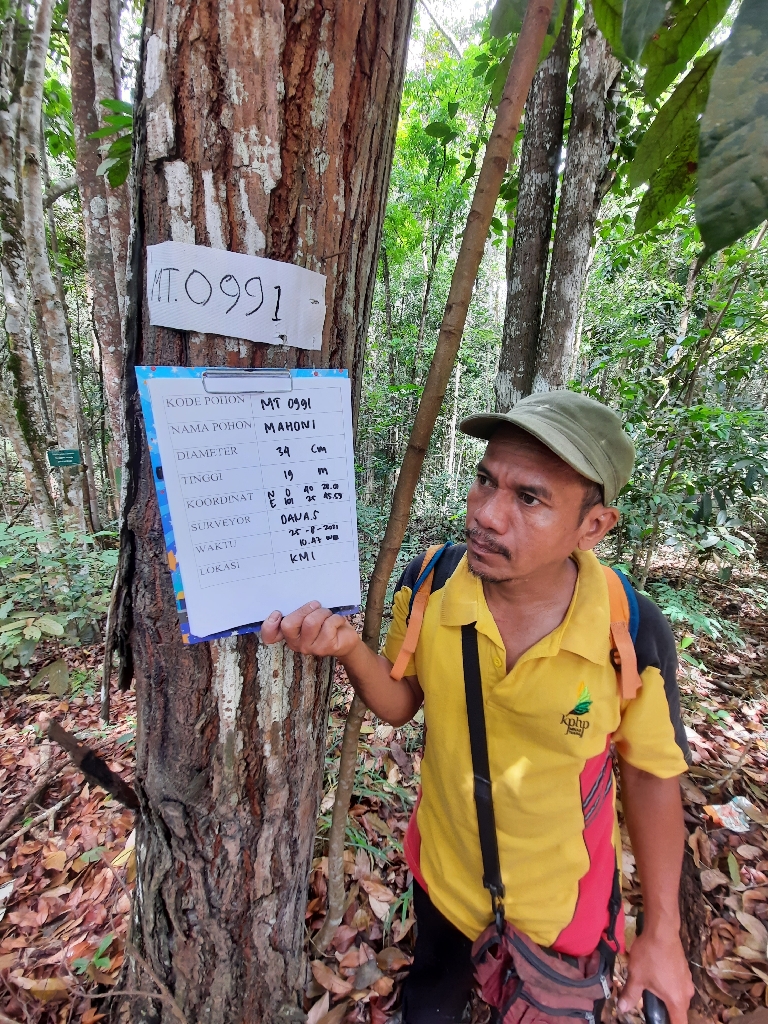 MT.0991
KODE POHON MT 0991
NAMA POHON MAHONI
DIAMETER 34 Cm
TINGGI 19 M
KOORDINAT N 0 40 28.01
E 101 25 45.59
SURVEYOR DANA.S
WAKTU 25-8-2021
10.47 WIB
LOKASI KMI
kphp